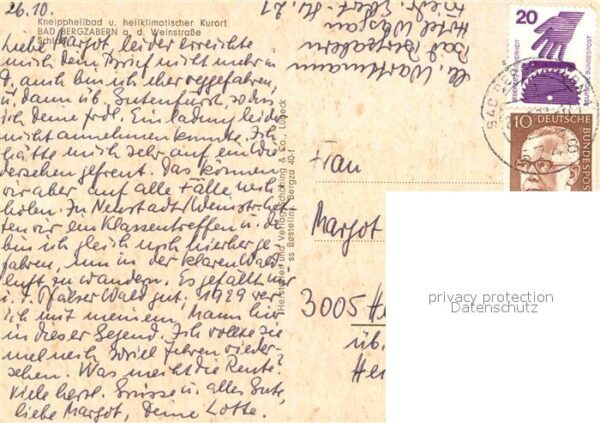 26.10.
Kneippheilbad u. heilklimatischer Kurort
BAD BERGZABERN a. d. Weinstraße
Liebe Margot, leider erreichte
mich dein Brief nicht mehr in
auch bin ich eher weggefahren,
u. dann üb. so das
ich deine frdl. Einladung leider
nicht annehmen konnte. Ich
hätte mich sehr auf ein Wie
dersehen gefreut. Das können
wir aber auf alle Fälle nach
holen. In Neustadt/Weinstr. hat
ten wir ein Klassentreffen u. da
bin ich gleich noch hierher ge
fahren, um in der klaren Wald
luft zu wandern. Es gefällt mir
i. Pfälzer Wald gut. 1929 war
ich mit meinem Mann hier
in dieser Gegend. Ich wollte sie
mal noch wieder
sehen. Was macht die Rente?
Viele herzl. Grüsse u. alles Gute,
liebe Margot, Deine Lotte.
Hotel
Bad Bergzabern
Schöning & Co., Lübeck
Bergza 40-1
Frau
Margot
3005
üb.
20
DEUTSCHE BUNDESPOST
10 DEUTSCHE
BUNDESPOST
BAD BER
privacy protection
Datenschutz